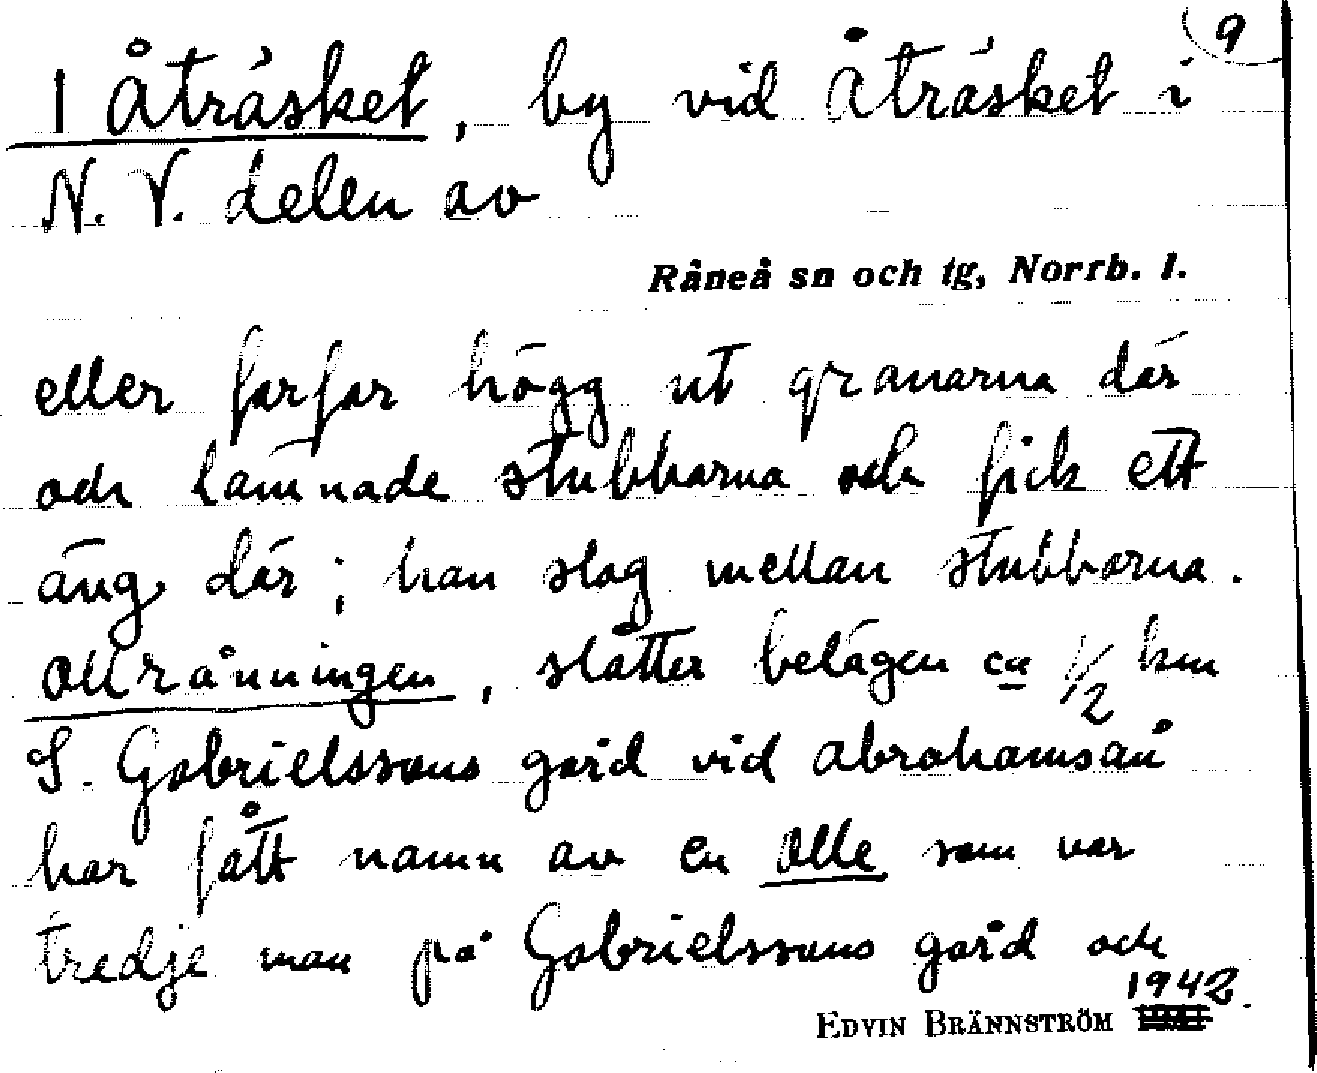 9
1 Åträsket, by vid Åträsket i
N. V. delen av
Råneå sn och tg, Norrb. l.
eller farfar högg ut granarna där
och lämnade stubbarna och fick ett
äng där; han slog mellan stubbarna.
Ollränningen, slåtter belägen ca 1/2 km
S. Gabrielssons gård vid Abrahamsån
har fått namn av en Olle som var
tredje man på Gabrielssons gård och
1942.
EDVIN BRÄNNSTRÖM